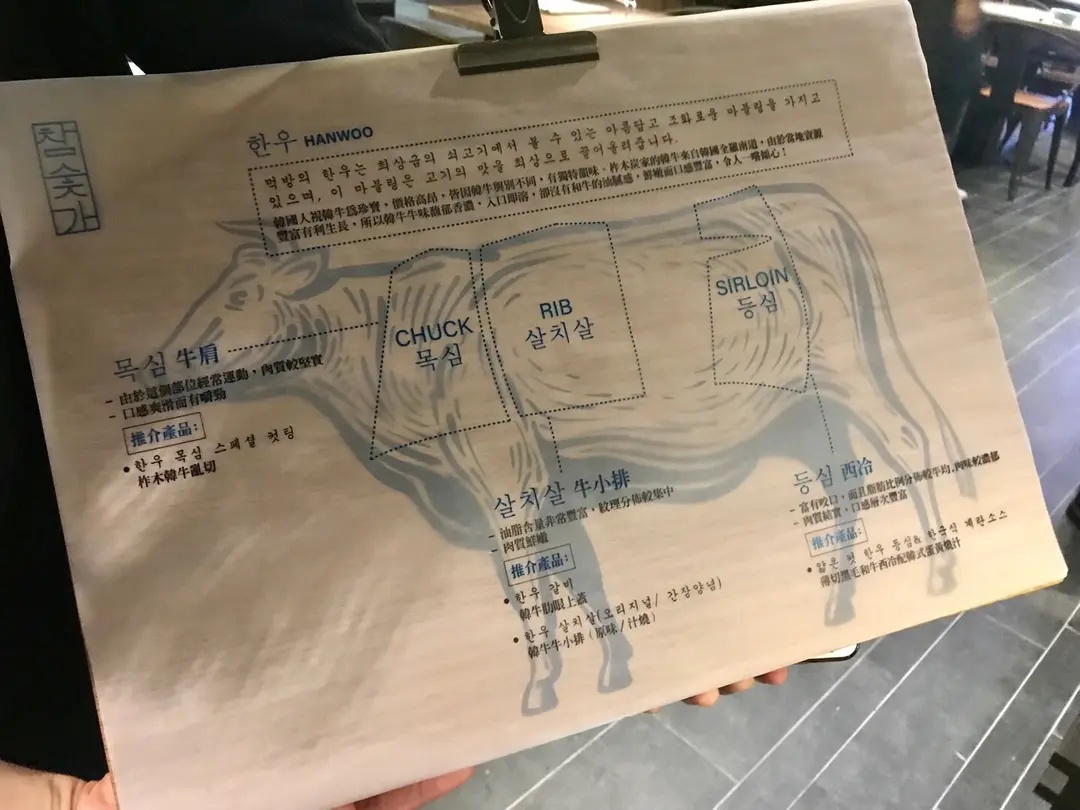 참숯가
한우 HANWOO
먹방의 한우는 최상급의 쇠고기에서 볼 수 있는 아름답고 조화로운 마블링을 가지고
있으며, 이 마블링은 고기의 맛을 최상으로 끌어올려줍니다.
韓國人視韓牛為珍寶，價格高昂，皆因韓牛與別不同，有獨特韻味，柞木炭家的韓牛來自韓國全羅南道，由於當地資源
豐富有利生長，所以韓牛牛味馥郁香濃，入口即溶，卻沒有和牛的油膩感，鮮嫩而口感豐富，令人一嚐傾心！
CHUCK
목심
RIB
살치살
SIRLOIN
등심
목심 牛肩
- 由於這個部位經常運動，肉質較堅實
- 口感爽滑而有嚼勁
推介產品:
• 한우 목심 스페셜 컷팅
柞木韓牛亂切
살치살 牛小排
- 油脂含量非常豐富，紋理分佈較集中
- 肉質鮮嫩
推介產品:
• 한우 갈비
韓牛肋眼上蓋
• 한우 살치살(오리지널/ 간장양념)
韓牛牛小排（原味/汁燒）
등심 西冷
- 富有咬口，而且脂肪比例分佈較平均，肉味較濃郁
- 肉質結實，口感層次豐富
推介產品:
• 얇은 컷 한우 등심& 한국식 계란소스
薄切黑毛和牛西冷配韓式蛋黃燒汁